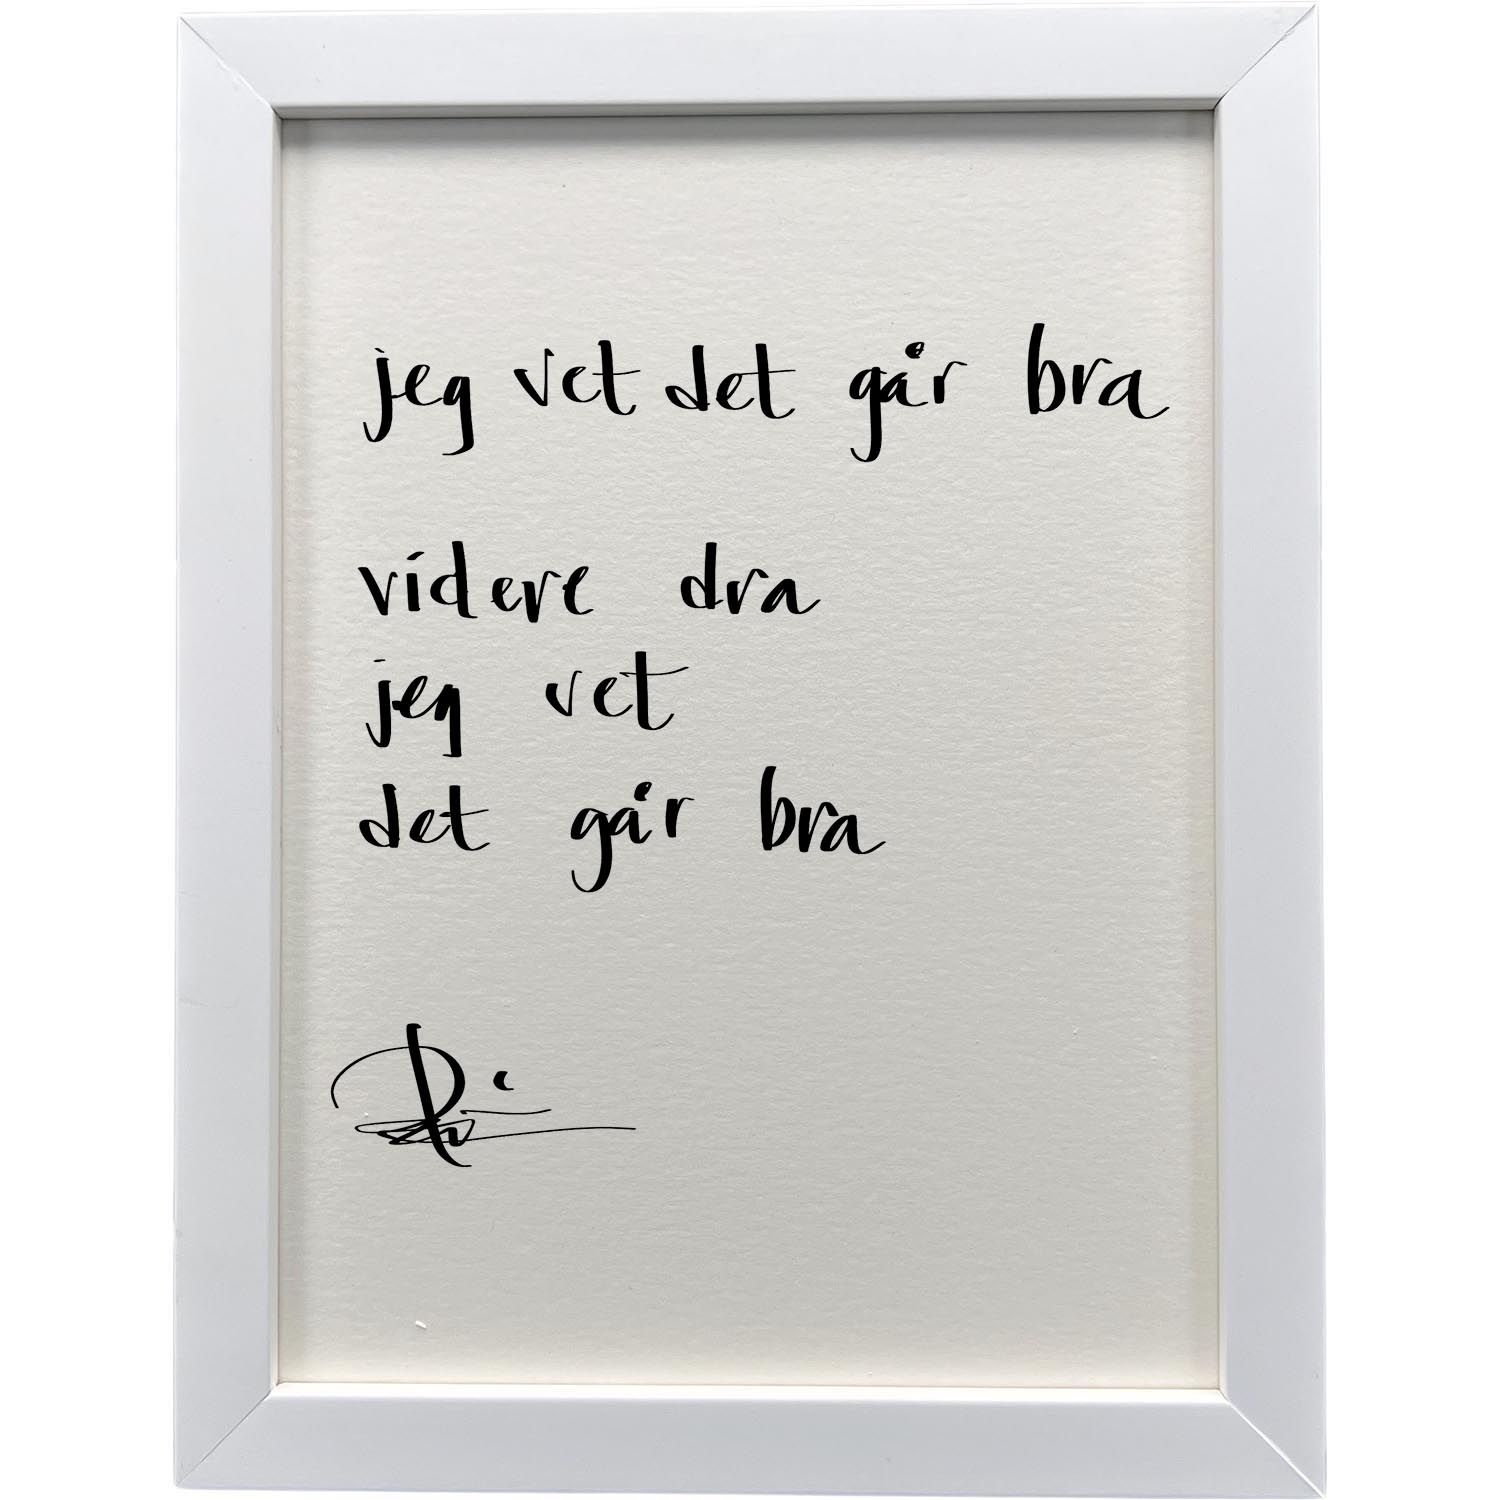 jeg vet det går bra
videre dra
jeg vet
det går bra